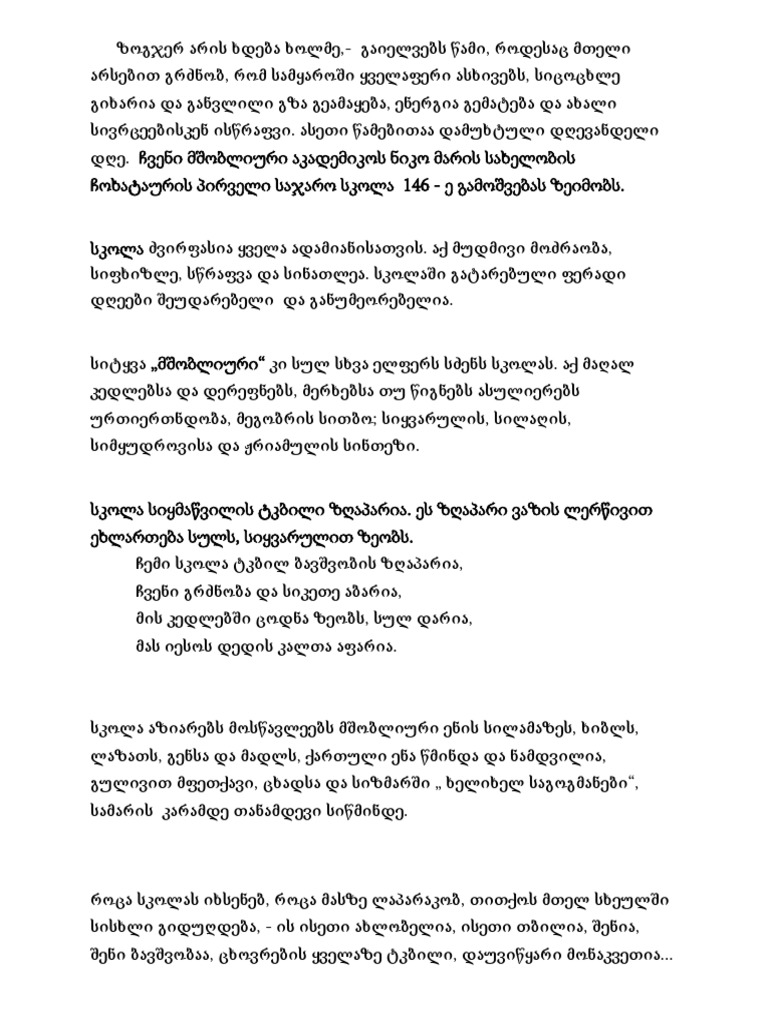 ზოგჯერ არის ხდება ხოლმე,-  გაიელვებს წამი, როდესაც მთელი
არსებით გრძნობ, რომ სამყაროში ყველაფერი ასხივებს, სიცოცხლე
გიხარია და განვლილი გზა გეამაყება, ენერგია გემატება და ახალი
სივრცეებისკენ ისწრაფვი. ასეთი წამებითაა დამუხტული დღევანდელი
დღე.  ჩვენი მშობლიური აკადემიკოს ნიკო მარის სახელობის
ჩოხატაურის პირველი საჯარო სკოლა  146 - ე გამოშვებას ზეიმობს.
სკოლა ძვირფასია ყველა ადამიანისათვის. აქ მუდმივი მოძრაობა,
სიფხიზლე, სწრაფვა და სინათლეა. სკოლაში გატარებული ფერადი
დღეები შეუდარებელი  და განუმეორებელია.
სიტყვა „მშობლიური“ კი სულ სხვა ელფერს სძენს სკოლას. აქ მაღალ
კედლებსა და დერეფნებს, მერხებსა თუ წიგნებს ასულიერებს
ურთიერთნდობა, მეგობრის სითბო; სიყვარულის, სილაღის,
სიმყუდროვისა და ჟრიამულის სინთეზი.
სკოლა სიყმაწვილის ტკბილი ზღაპარია. ეს ზღაპარი ვაზის ლერწივით
ეხლართება სულს, სიყვარულით ზეობს.
ჩემი სკოლა ტკბილ ბავშვობის ზღაპარია,
ჩვენი გრძნობა და სიკეთე აბარია,
მის კედლებში ცოდნა ზეობს, სულ დარია,
მას იესოს დედის კალთა აფარია.
სკოლა აზიარებს მოსწავლეებს მშობლიური ენის სილამაზეს, ხიბლს,
ლაზათს, გენსა და მადლს, ქართული ენა წმინდა და ნამდვილია,
გულივით მფეთქავი, ცხადსა და სიზმარში „ ხელიხელ საგოგმანები“,
სამარის  კარამდე თანამდევი სიწმინდე.
როცა სკოლას იხსენებ, როცა მასზე ლაპარაკობ, თითქოს მთელ სხეულში
სისხლი გიდუღდება, - ის ისეთი ახლობელია, ისეთი თბილია, შენია,
შენი ბავშვობაა, ცხოვრების ყველაზე ტკბილი, დაუვიწყარი მონაკვეთია...